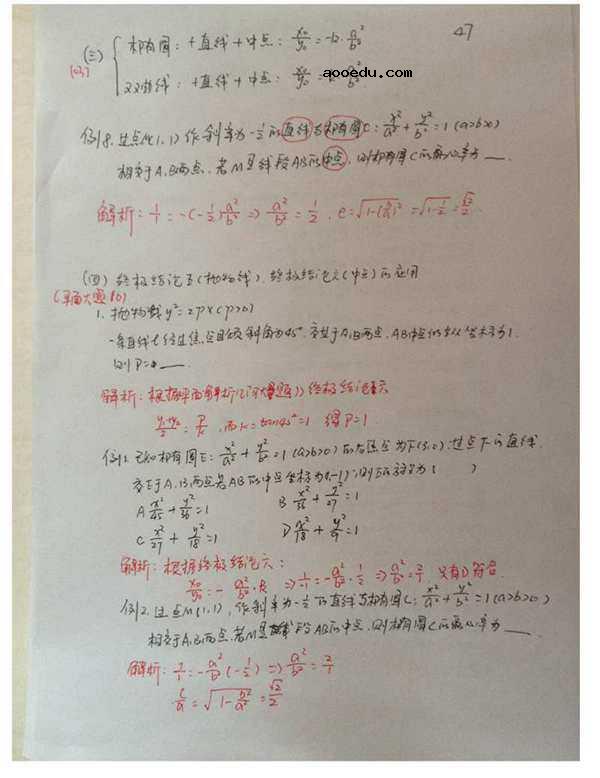 47
(三) { 椭圆：+直线+中点：x₀/y₀=-k·a²/b²
双曲线：+直线+中点：x₀/y₀=k·a²/b²
apoedu.com
例8.过点M(1,1)作斜率为-1/2的直线与椭圆C：x²/a²+y²/b²=1(a>b>0)
相交于A,B两点,若M是线段AB的中点,则椭圆C的离心率为___.
解析：1/1=-(-1/2)a²/b² => a²/b²=1/2. e=√(1-(b/a)²)=√(1-1/2)=√2/2
(四) 终极结论五(抛物线).终极结论六(中点)的应用
1.抛物线y²=2px(p>0)
一条直线 经过焦点且倾斜角为45°.交于A,B两点.AB中点的纵坐标为1.
则P=___.
解析：根据平面解析几何大题 终极结论六
(y₁+y₂)/2=P/k,而k=tan45°=1 得P=1
例1.已知椭圆E：x²/a²+y²/b²=1(a>b>0)的右焦点为F(3,0).过点F的直线
交E于A,B两点若AB的中点坐标为(1,-1).则E的方程为( )
A x²/45+y²/36=1 B x²/36+y²/27=1
C x²/27+y²/18=1 D x²/18+y²/9=1
解析：根据终极结论六：
x₀/y₀=-a²/b²·k => 1/-1=-a²/b²·1/2 => a²/b²=2/1 只有D符合
例2.过点M(1,1),作斜率为-1/2的直线与椭圆C：x²/a²+y²/b²=1(a>b>0)
相交于A,B两点,若M是线段AB的中点.则椭圆C的离心率为___
解析：1/1=-a²/b²(-1/2) => a²/b²=2/1
c/a=√(1-b²/a²)=√2/2